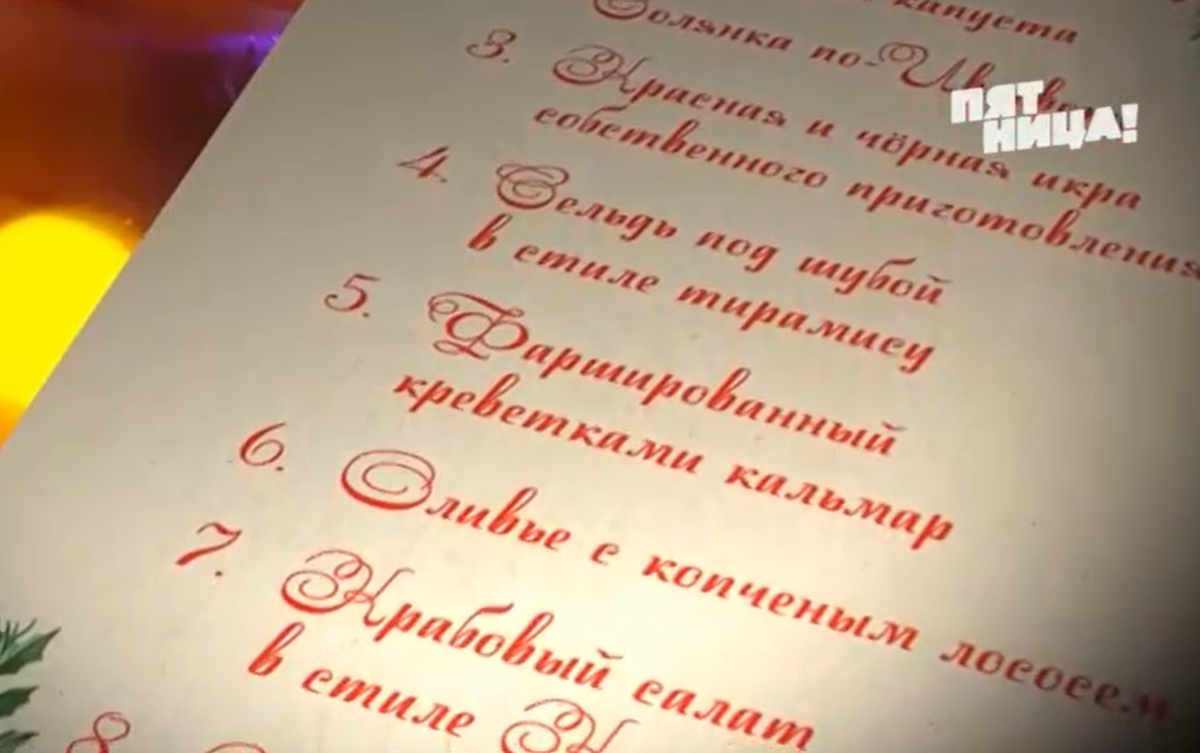 капуста
Солянка по-
3. Красная и чёрная икра
собственного приготовления
4. Сельдь под шубой
в стиле тирамису
5. Фаршированный
креветками кальмар
6. Оливье с копченым лососем
7. Крабовый салат
в стиле
8.
ПЯТ
НИЦА!